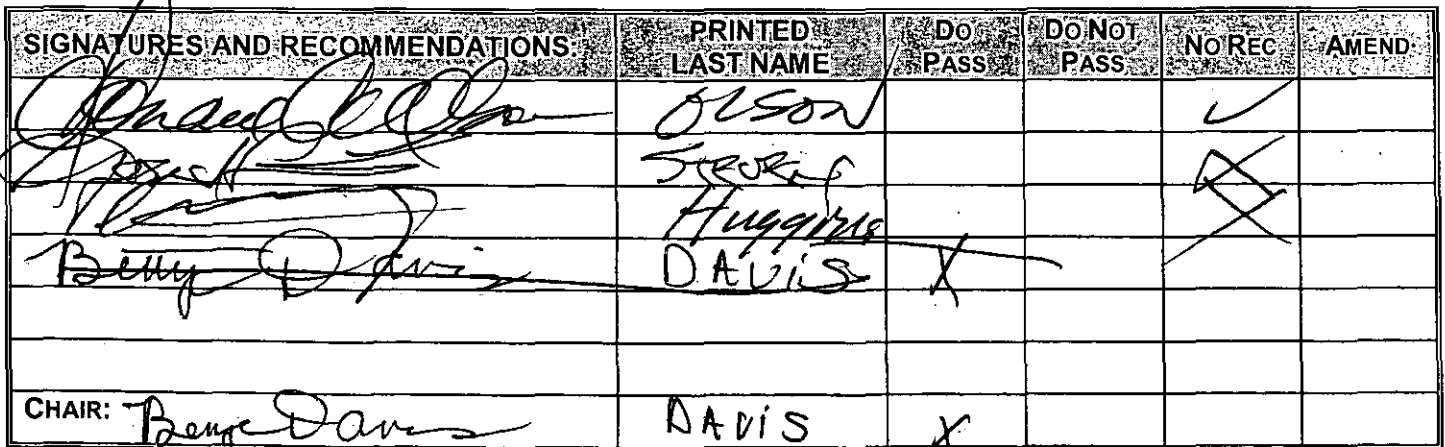 SIGNATURES AND RECOMMENDATIONS: PRINTED LAST NAME DO PASS DO NOT PASS NO REC AMEND
OLSON ✓
Stevens X
Huggins X
Betty Davis DAVIS X
CHAIR: Bettye Davis DAVIS X